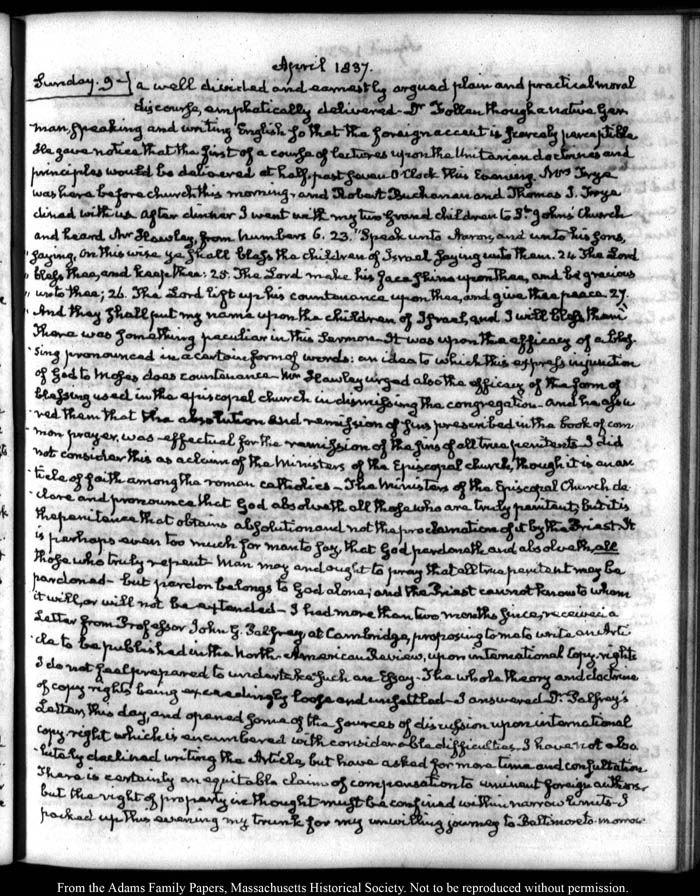 April 1837.
Sunday. 9–} a well divided and earnestly argued plain and practical moral
discourse, emphatically delivered – Dr. Follen though a native Ger-
man, speaking and writing English so that the foreign accent is scarcely perceptible
He gave notice that the first of a course of lectures upon the Unitarian doctrines and
principles would be delivered at half past seven O'Clock this Evening. Mrs Frye
was here before church this morning, and Robert Buchanan and Thomas J. Frye
dined with us. after dinner I went with my two Grand children to St. John's Church
and heard Mr Hawley, from Numbers 6. 23. "Speak unto Aaron, and unto his sons,
saying, On this wise ye shall bless the children of Israel saying unto them. 24 The Lord
bless thee, and keep thee: 25. The Lord make his face shine upon thee, and be gracious
" unto thee; 26. The Lord lift up his countenance upon thee, and give thee peace. 27.
" And they shall put my name upon the children of Israel, and I will bless them."
There was something peculiar in this Sermon – It was upon the efficacy of a bles-
sing pronounced in a certain form of words: an idea to which this express injunction
of God to Moses does countenance – Mr Hawley urged also the efficacy of the form of
blessing used in the episcopal church in dismissing the congregation – and he assu-
red them that the absolution and remission of sins prescribed in the book of com
mon prayer, was effectual for the remission of the sins of all true penitents – I did
not consider this as a claim of the Ministers of the Episcopal church, though it is an ar
ticle of faith among the roman catholics – The Ministers of the Episcopal Church de-
clare and pronounce that God absolveth all those who are truly penitent; but it is
the penitence that obtains absolution and not the proclamation of it by the Priest – It
is perhaps even too much for man to say, that God pardoneth and absolveth, all
those who truly repent – Man may and ought to pray that all true penitent may be
pardoned – but pardon belongs to God alone; and the Priest cannot know to whom
it will, or will not be extended – I had more than two months since, received a
Letter from Professor John G. Palfrey, at Cambridge, proposing to me to write an Arti-
cle to be published in the North-American Review, upon international Copy-right
I do not feel prepared to undertake such an Essay – The whole theory and doctrine
of copy right, being exceedingly loose and unsettled – I answered Dr. Palfrey's
Letter, this day, and opened some of the sources of discussion upon international
copy right which is encumbered with considerable difficulties. I have not abso-
lutely declined writing the Article, but have asked for more time and consultation
There is certainly an equitable claim of compensation to eminent foreign authors,
but the right of property in thought must be confined within narrow limits – I
packed up this evening my trunk for my unwilling journey to Baltimore to-morrow
From the Adams Family Papers, Massachusetts Historical Society. Not to be reproduced without permission.